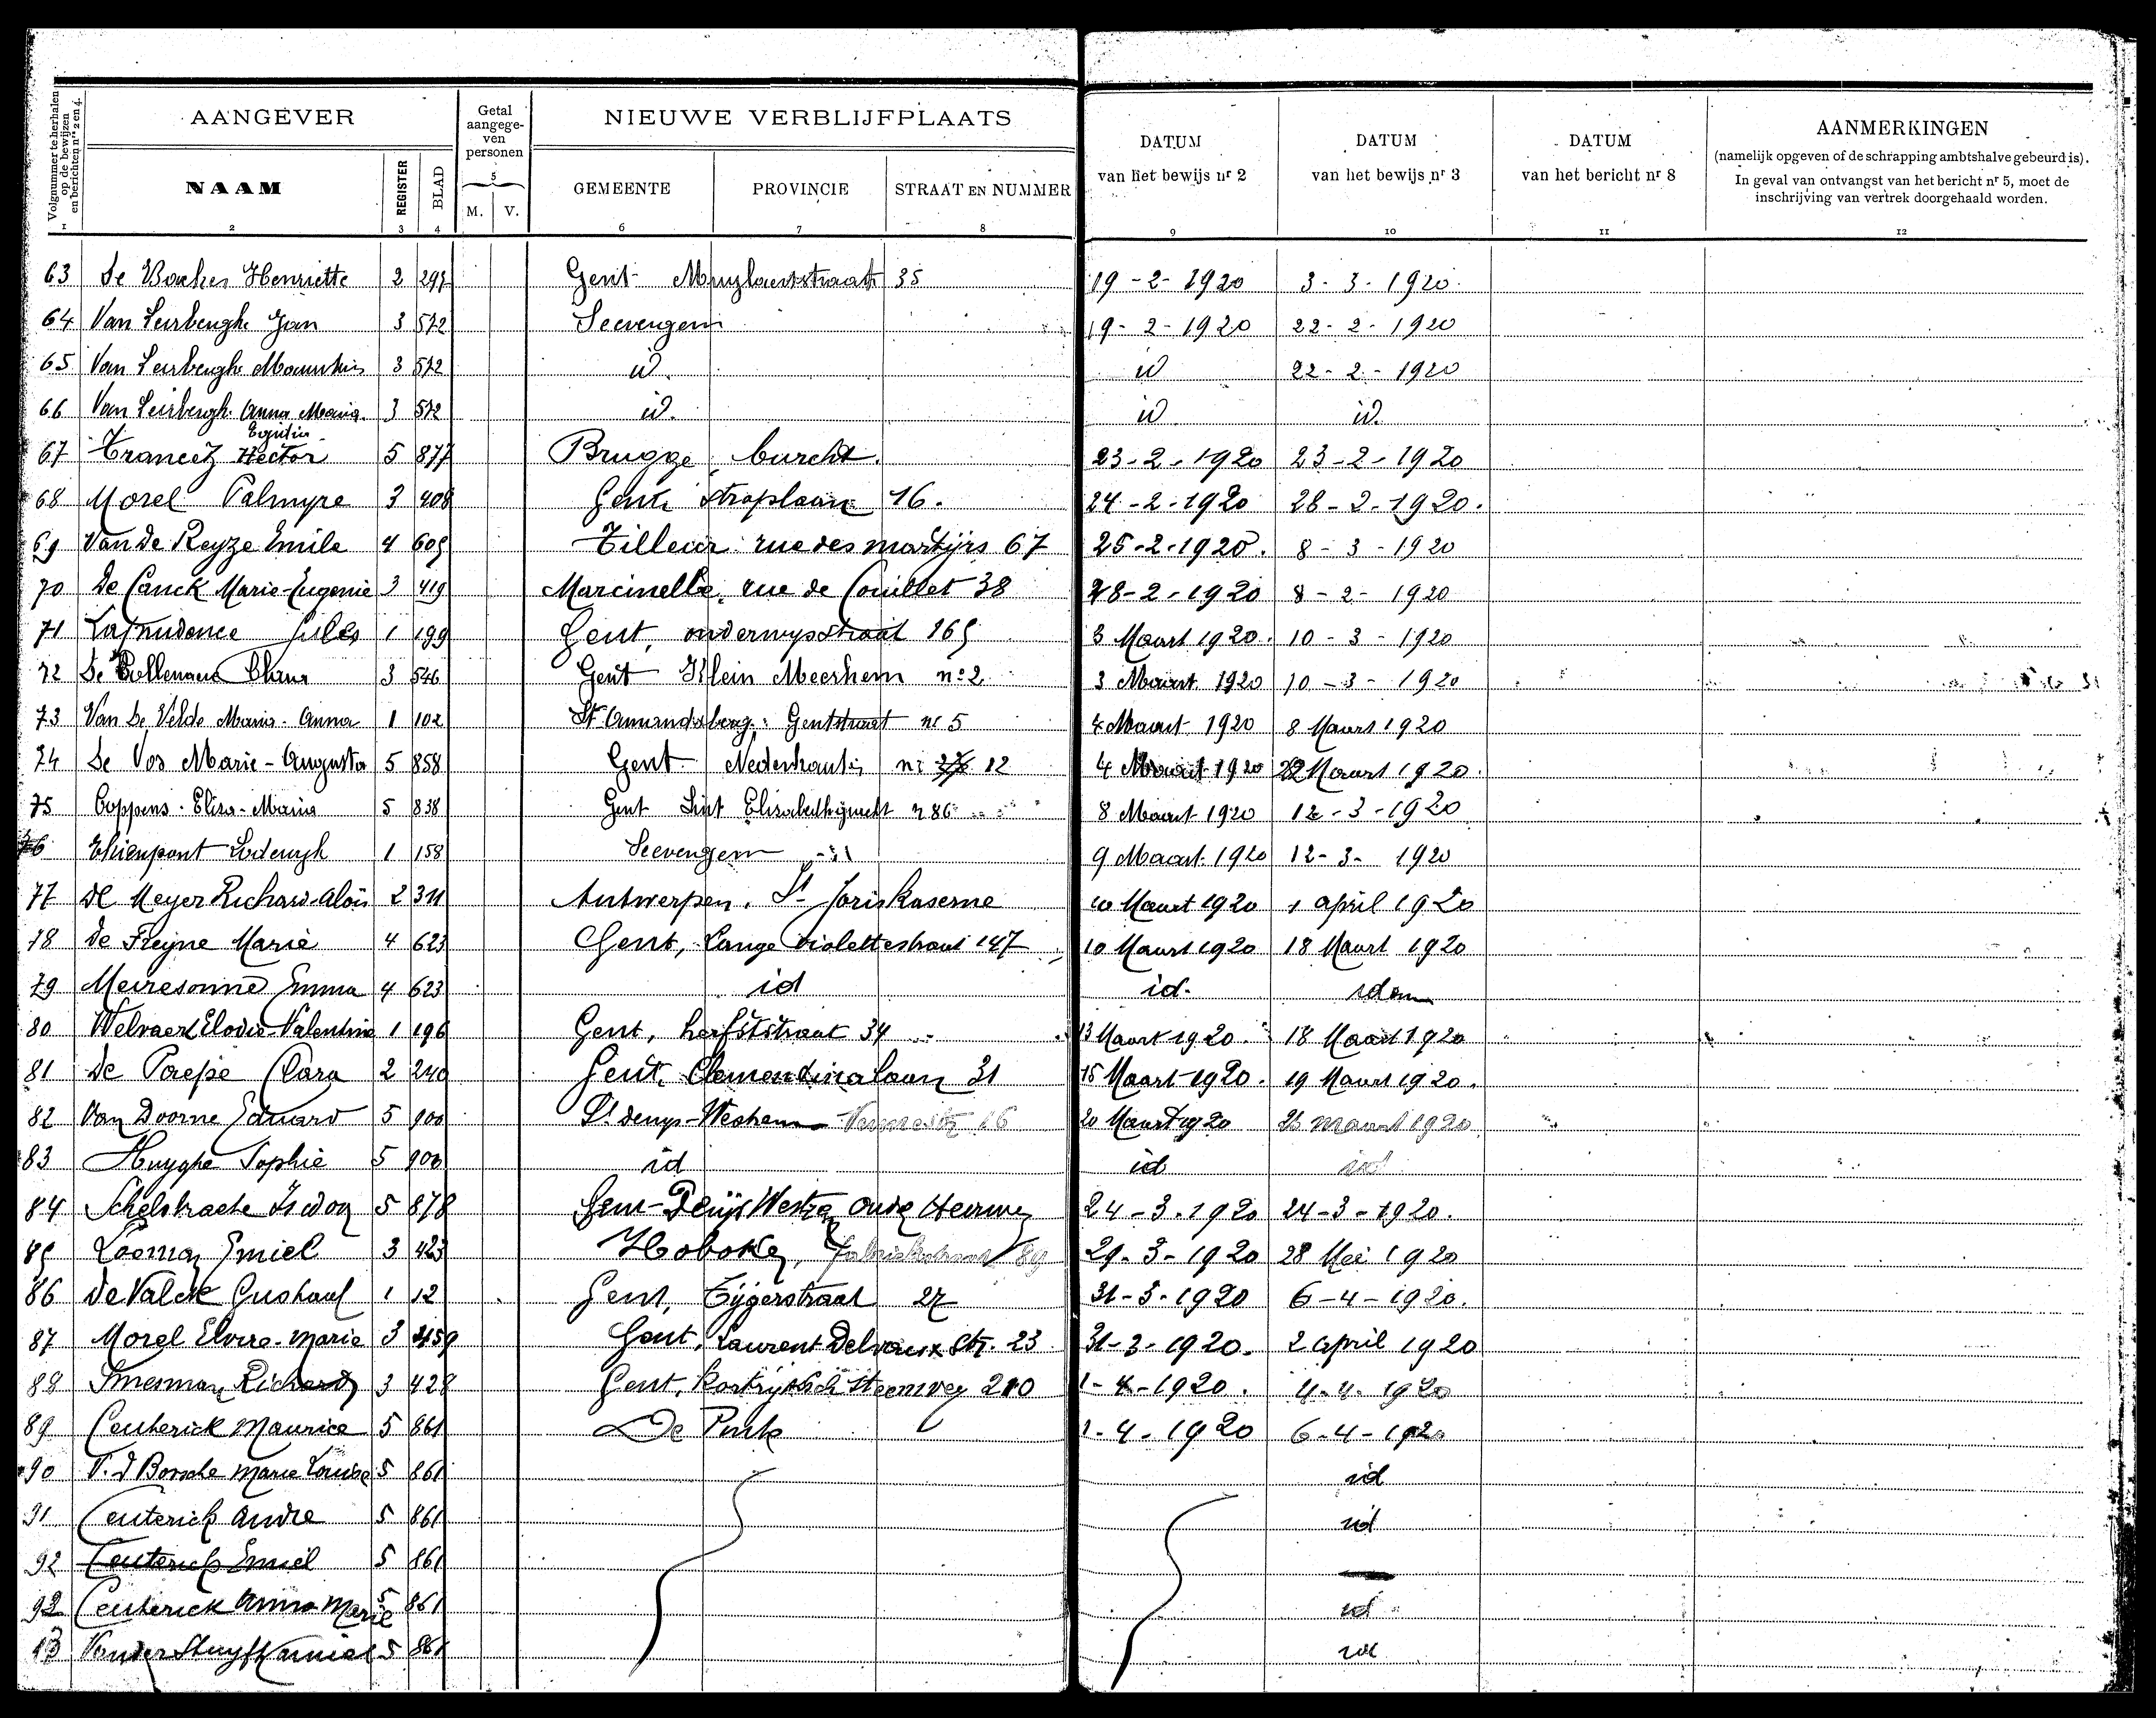 Volgnummer te herhalen op de bewijzen en berichten nrs 2 en 4.
AANGEVER
Getal aangege-ven personen
NIEUWE VERBLIJFPLAATS
DATUM van het bewijs nr 2
DATUM van het bewijs nr 3
DATUM van het bericht nr 8
AANMERKINGEN
(namelijk opgeven of de schrapping ambtshalve gebeurd is).
In geval van ontvangst van het bericht nr 5, moet de
inschrijving van vertrek doorgehaald worden.
NAAM REGISTER BLAD M. V. GEMEENTE PROVINCIE STRAAT EN NUMMER
1 2 3 4 5 6 7 8 9 10 11 12
63 De Backer Henriette 2 297 Gent Muylaertstraat 35 19-2-1920 3-3-1920
64 Van Leirberghe Jan 3 572 Seevergem 19-2-1920 22-2-1920
65 Van Leirberghe 3 572 id. id 22-2-1920
66 Van Leirbergh. Anna Maria 3 572 id. id id.
67 Hector 5 877 Brugge, burcht. 23-2-1920 23-2-1920
68 Morel Palmyre 3 408 Gent stroplaan 16. 24-2-1920 28-2-1920.
69 Van De Reyze Emile 4 605 Tilleur rue des martijrs 67 25-2-1920. 8-3-1920
70 De Canck Marie-Eugenie 3 419 Marcinelle, rue de Couillet 38 28-2-1920 8-2-1920
71 Laprudence Jules 1 199 Gent, onderwysstraat 165 3 Maart 1920. 10-3-1920
72 3 546 Gent Klein Meerhem n° 2 3 Maart 1920 10-3-1920
73 Van De Velde Maria-Anna 1 102 St Amandsberg: Gentstraat nr 5 4 Maart 1920 8 Maart 1920
74 De Vos Marie-Augusta 5 858 Gent nr 12 4 Maart 1920 22 Maart 1920.
75 Coppens Elisa-Maria 5 838 Gent Sint n 86 8 Maart 1920 12-3-1920
76 Thienpont Lodewyk 1 158 Seevergem 9 Maart 1920 12-3-1920
77 De Meyer Richard-Aloïs 2 311 Antwerpen. St Joris kaserne 10 Maart 1920 1 april 1920
78 De Freyne Marie 4 623 Gent, Lange violettestraat 147 10 Maart 1920 18 Maart 1920
79 Meiresonne Emma 4 623 id id. idem
80 Welvaert Elodie-Valentine 1 196 Gent, herfststraat 34 13 Maart 1920. 18 Maart 1920
81 De Paepe Clara 2 240 Gent, Clemendinalaan 31 15 Maart 1920. 19 Maart 1920.
82 Van Doorne Eduard 5 900 St denys-Westrem 16 20 Maart 1920 maart 1920
83 Huyghe Sophie 5 900 id id id
84 Schelstraete Isidoor 5 878 24-3-1920 24-3-1920.
85 Looman Emiel 3 423 Hoboken, 89 29-3-1920 28 Mei 1920
86 De Valck Gustaaf 1 12 Gent, Tijgerstraat 27 31-3-1920 6-4-1920.
87 Morel Elvire-marie 3 459 Gent, Laurent Delvaux str. 23 31-3-1920. 2 april 1920
88 Smesman Richard 3 428 Gent, Kortrijksche steenweg 210 1-4-1920. 4-4-1920
89 Ceuterick Maurice 5 861 De Pinte 1-4-1920 6-4-1920
90 V. d Borsche Marie Louise 5 861 id
91 Ceuterick André 5 861 id
92 Ceuterick Emiel 5 861
92 Ceuterick Anna Marie 5 861 id
93 Vander Stuyft Camiel 5 861 id